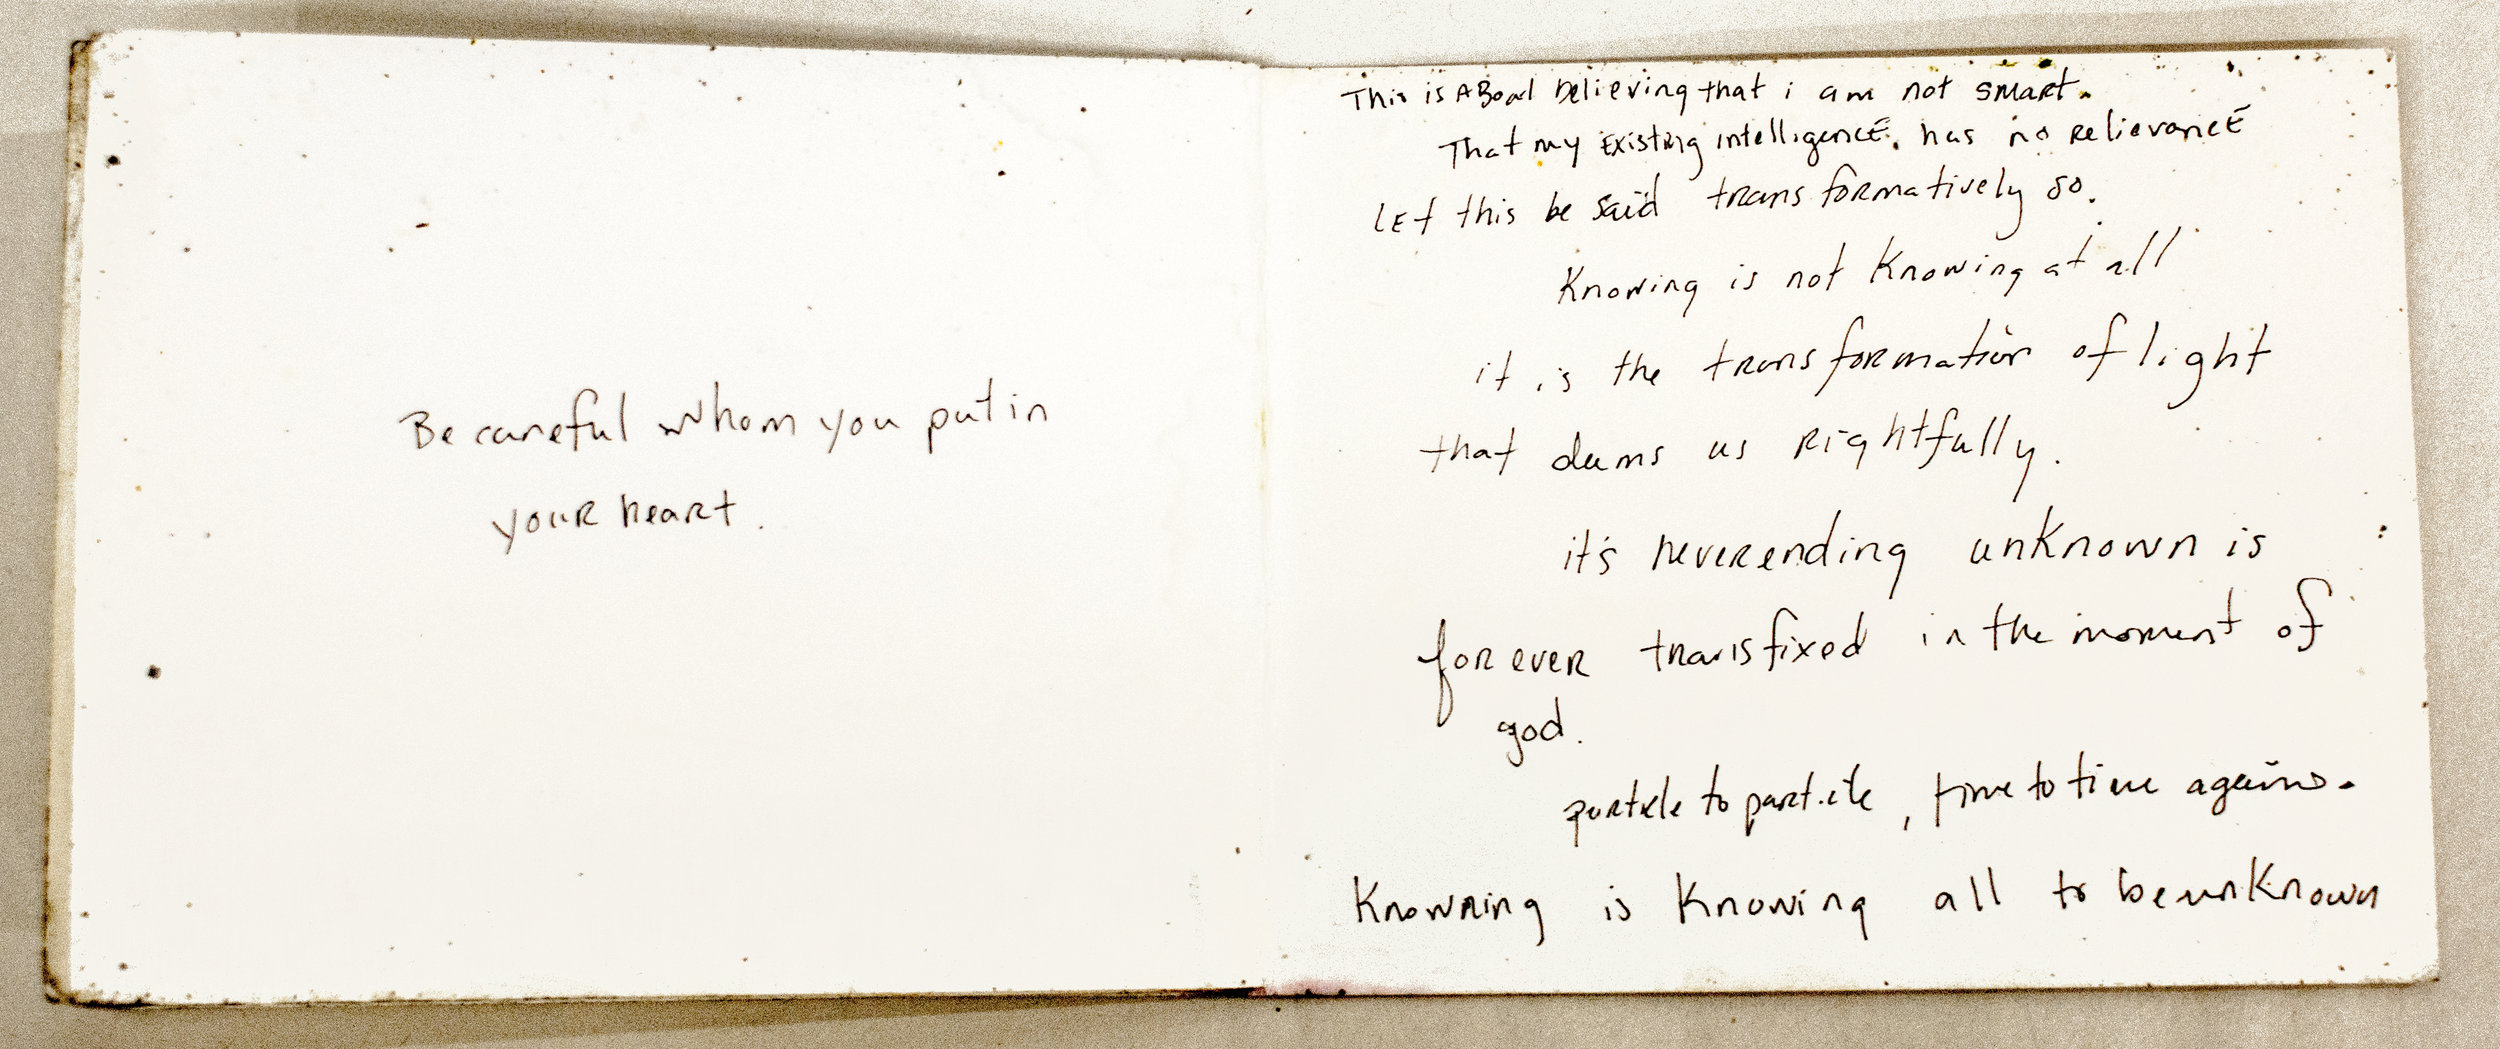 Be careful whom you put in
your heart.
This is A Boad believing that i am not smart.
That my Existing intelligencE. has no relievancE
LEt this be said transformatively so.
Knowing is not Knowing at all
it is the transformation of light
that dams us Rightfully.
it's neverending unknown is
forever transfixed in the moment of
god.
particle to particle, time to time again.
Knowning is Knowing all to be unknown